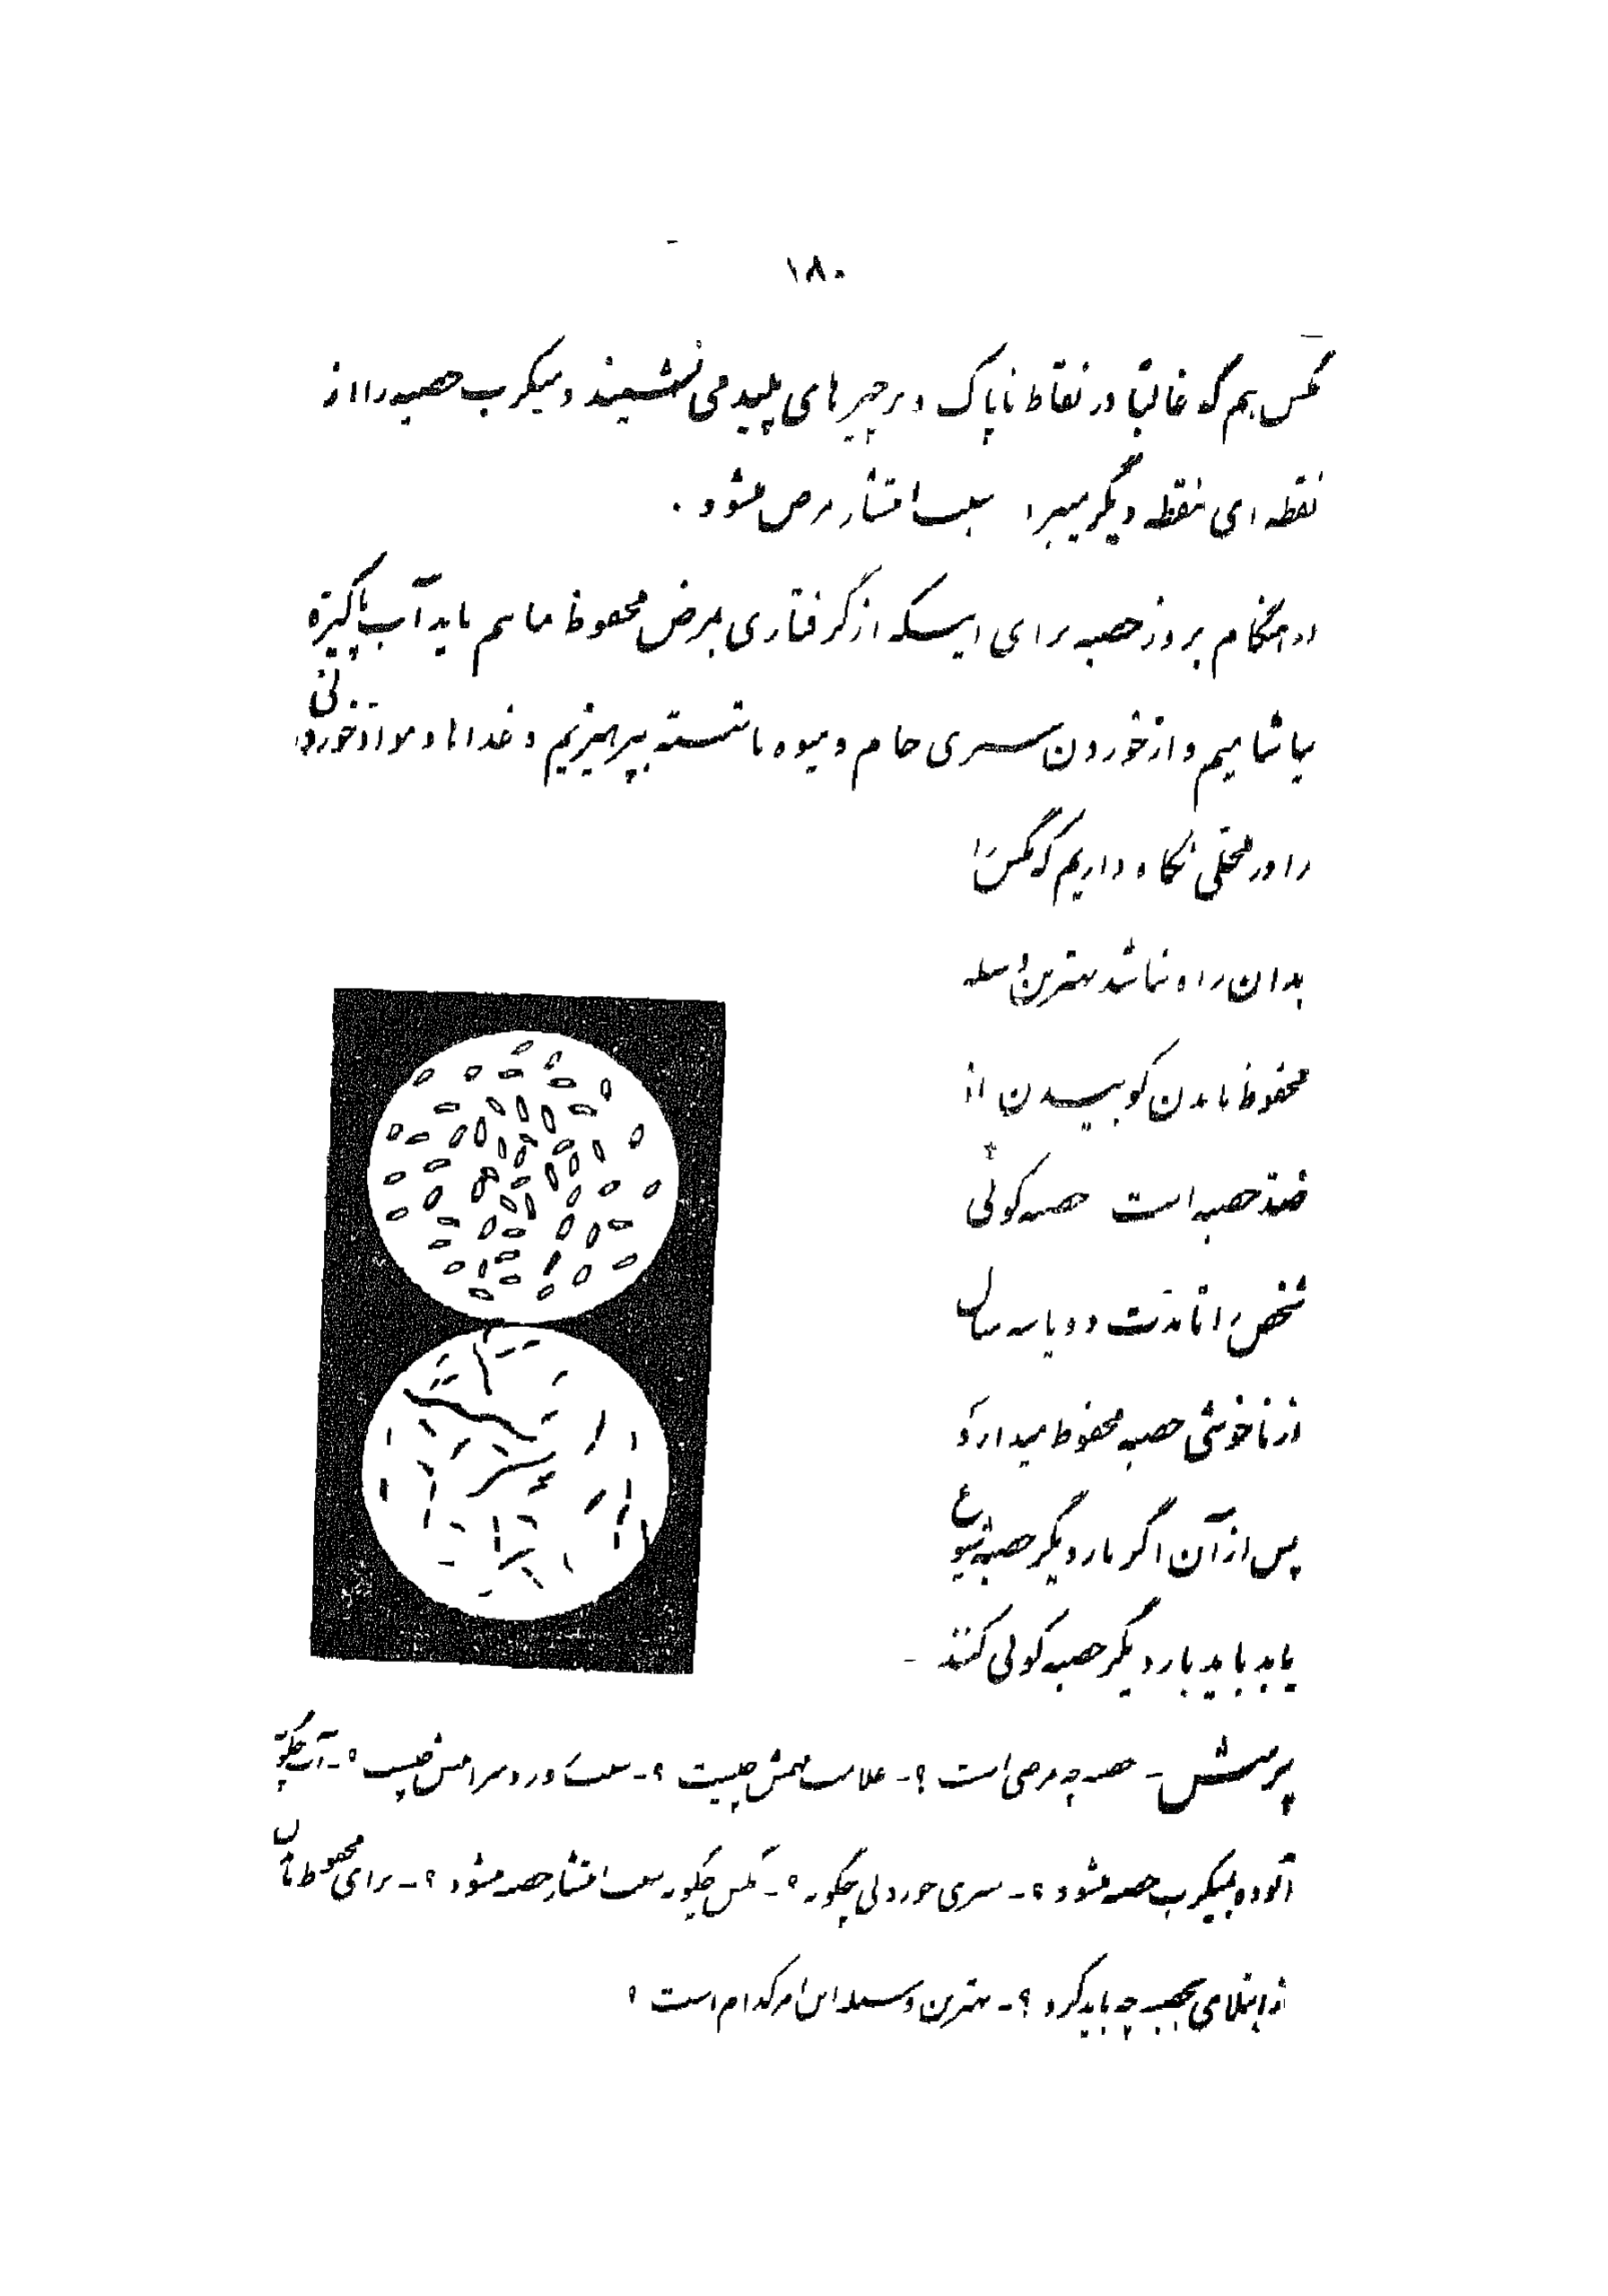 ۱۸۰
مگس هم که غالباً در نقاط ناپاک و بر چیزهای پلید می نشیند و میکرب حصبه را از
نقطه ای بنقطه دیگر میبرد سبب انتشار مرض میشود .
در هنگام بروز حصبه برای اینکه از گرفتاری بمرض محفوظ مانیم باید آب پاکیزه
بیاشامیم و از خوردن سبزی خام و میوه ناشسته بپرهیزیم و غذاها و مواد خوردنی
را در محلی نگاه داریم که مگس را
بدان راه نباشد بهترین وسیله
محفوظ ماندن کوبیدن از
ضد حصبه است حصبه کوبی
شخص را تا مدت دو یا سه سال
از ناخوشی حصبه محفوظ میدارد و
پس از آن اگر بار دیگر حصبه شیوع
یابد باید بار دیگر حصبه کوبی کنند -
پرسش - حصبه چه مرضی است ؟ - علامت مهمش چیست ؟ - سبب درد سرایتش چیست ؟ - آب چگونه
آلوده بمیکرب حصبه میشود ؟ - سبزی خوردنی چگونه ؟ - مگس چگونه سبب انتشار حصبه میشود ؟ - برای محفوظ ماندن
از ابتلای بحصبه چه باید کرد ؟ - بهترین وسیله این امر کدام است ؟